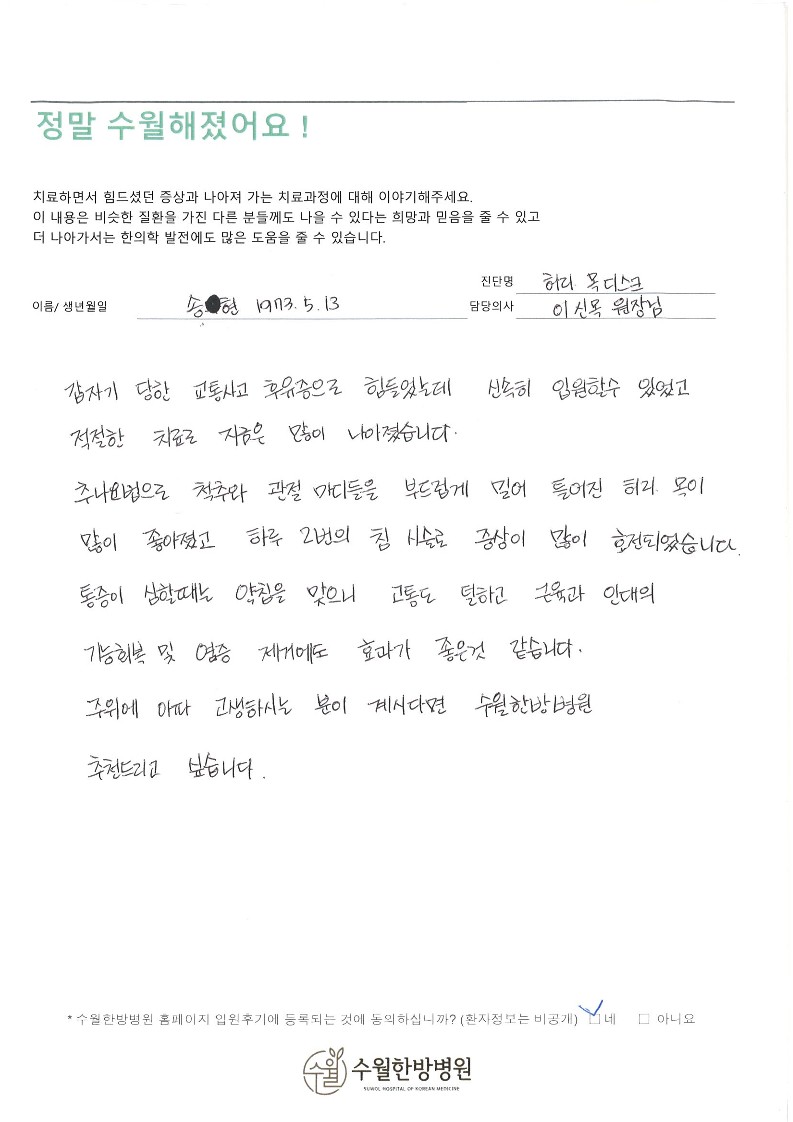 정말 수월해졌어요 !
치료하면서 힘드셨던 증상과 나아져 가는 치료과정에 대해 이야기해주세요.
이 내용은 비슷한 질환을 가진 다른 분들께도 나을 수 있다는 희망과 믿음을 줄 수 있고
더 나아가서는 한의학 발전에도 많은 도움을 줄 수 있습니다.
진단명 허리. 목디스크
이름/ 생년월일 송 현 1973. 5. 13 담당의사 이신목 원장님
갑자기 당한 교통사고 후유증으로 힘들었는데 신속히 입원할수 있었고
적절한 치료로 지금은 많이 나아졌습니다.
추나요법으로 척추와 관절 마디들을 부드럽게 밀어 틀어진 허리. 목이
많이 좋아졌고 하루 2번의 침 시술로 증상이 많이 호전되었습니다.
통증이 심할때는 약침을 맞으니 고통도 덜하고 근육과 인대의
기능회복 및 염증 제거에도 효과가 좋은것 같습니다.
주위에 아파 고생하시는 분이 계시다면 수월한방병원
추천드리고 싶습니다.
* 수월한방병원 홈페이지 입원후기에 등록되는 것에 동의하십니까? (환자정보는 비공개) ☑ 네 □ 아니요
수월 수월한방병원
SUWOL HOSPITAL OF KOREAN MEDICINE